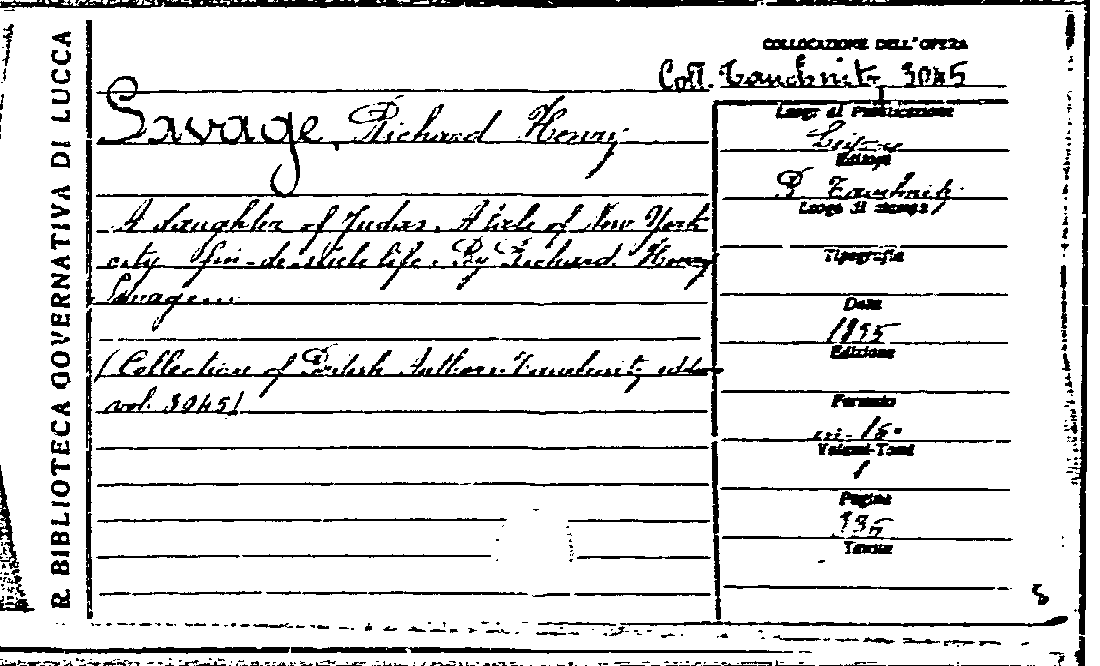 R. BIBLIOTECA GOVERNATIVA DI LUCCA
COLLOCAZIONE DELL'OPERA
Coll. Tauchnitz 3045
Savage, Richard Henry
A daughter of Judas. A tale of New York
city fin-de-siècle life. By Richard Henry
Savage...
(Collection of British Authors Tauchnitz edition
vol. 3045)
Luogo di Pubblicazione
Editore
B. Tauchnitz
Luogo di stampa
Tipografia
Data
1895
Edizione
Formato
in-16°
Volumi-Tomi
1
Pagine
Tavole